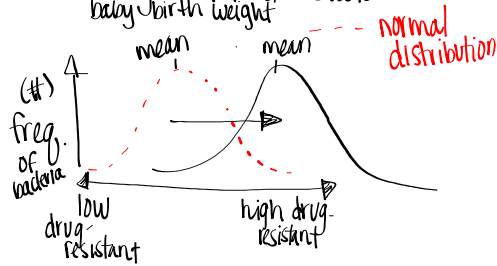 baby birth weight
normal
distribution
mean
mean
(#)
freq.
of
bacteria
low
drug-
resistant
high drug-
resistant